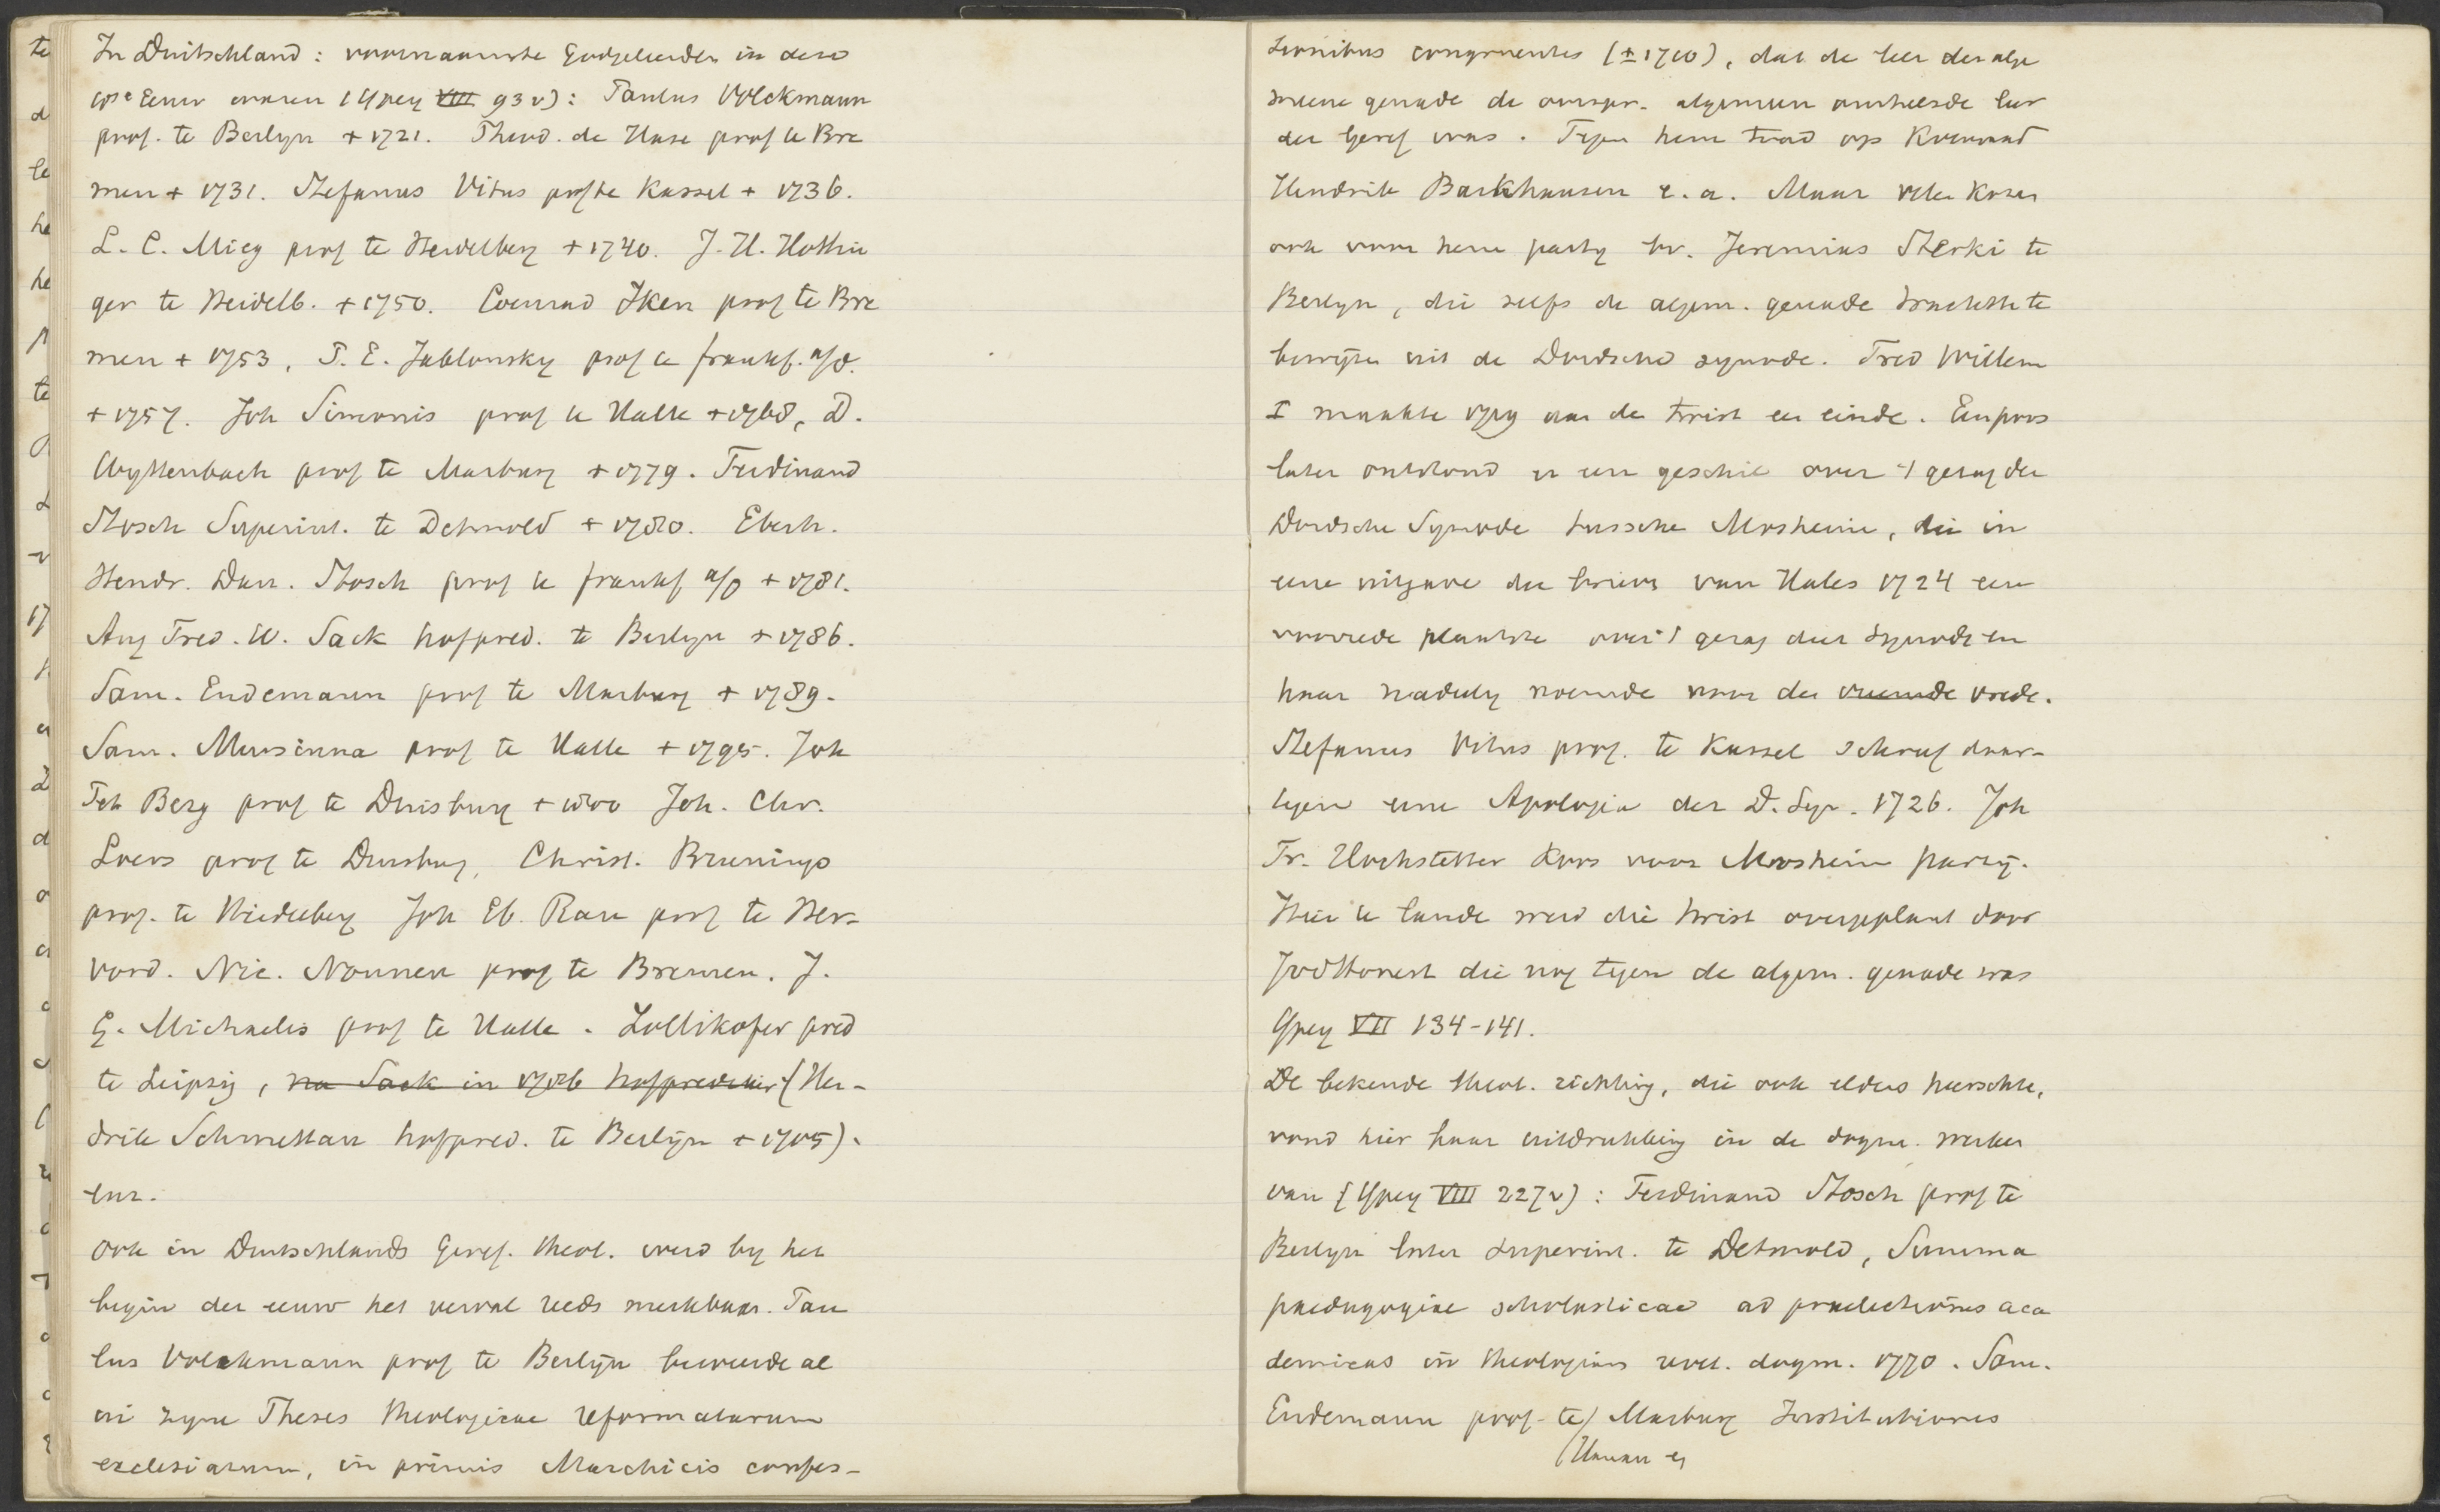 In Duitschland: voornaamste Godgeleerden in deze
18e Eeuw waren (Ypey VIII 93 v): Paulus Volckmann
prof. te Berlyn + 1721. Theod. de Hase prof te Bre
men + 1731. Stefanus Vitus prof te Kassel + 1736.
L. C. Mieg prof te Heidelberg + 1740. J. H. Hottin
ger te Heidelb. + 1750. Coenrad Iken prof te Bre
men + 1753, P. E. Jablonsky prof te frankf. a/O.
+ 1757. Joh Simonis prof te Halle + 1768, D.
Wyttenbach prof te Marburg + 1779. Ferdinand
Stosch Superint. te Detmold + 1780. Eberh.
Hendr. Dan. Stosch prof te frankf a/O + 1781.
Aug Fred. W. Sack hofpred. te Berlyn + 1786.
Sam. Endemann prof te Marburg + 1789.
Sam. Mursinna prof te Halle + 1795. Joh
Pet Berg prof te Duisburg + 1800 Joh. Chr.
Loers prof te Duisburg, Christ. Brunings
prof. te Heidelberg Joh Eb. Rau prof te Her-
vord. Nic. Nonnen prof te Bremen. J.
G. Michaelis prof te Halle. Zollikofer pred
te Leipzig, na Sack in 1786 hofprediker (Hen-
drik Schmettau hofpred. te Berlijn + 1705).
enz.
Ook in Duitschlands Geref. theol. werd by het
begin der eeuw het verval reeds merkbaar. Pau
lus Volckmann prof te Berlijn beweerde al
in zyne Theses theologicae reformatarum
ecclesiarum, in primis Marchicis confes-
sionibus congruentes (± 1710), dat de leer der alge
meene genade de oorspr. algemeen omhelsde leer
der Geref was. Tegen hem trad op Koenraad
Hendrik Barkhausen e.a. Maar velen kozen
ook voor hem party bv. Jeremias Sterki te
Berlyn, die zelfs de algem. genade trachtte te
bewijzen uit de Dordsche synode. Fred Willem
I maakte 1719 aan de twist een einde. Een poos
later ontstond er een geschil over 't gezag der
Dordsche Synode tusschen Mosheim, die in
eene uitgave der brieven van Hales 1724 een
voorrede plaatste over 't gezag der Synode en
haar nadeelig noemde voor den vreemde vrede.
Stefanus Vitus prof. te Kassel schreef daar-
tegen eene Apologia der D. Syn. 1726. Joh
Fr. Hochstetter koos voor Mosheim party.
Hier te lande werd die twist overgeplant door
Jod Honert die nog tegen de algem. genade was
Ypey VII 134-141.
De bekende theol. richting, die ook elders heerschte,
vond hier haar uitdrukking in de dogm. werken
van (Ypey VIII 227 v): Ferdinand Stosch prof te
Berlyn later superint. te Detmold, Summa
paedagogiae scholasticae ad praelectiones aca
demicas in theologiam revel. dogm. 1770. Sam.
Endemann prof. te / Marburg Institutiones
(Hanau en